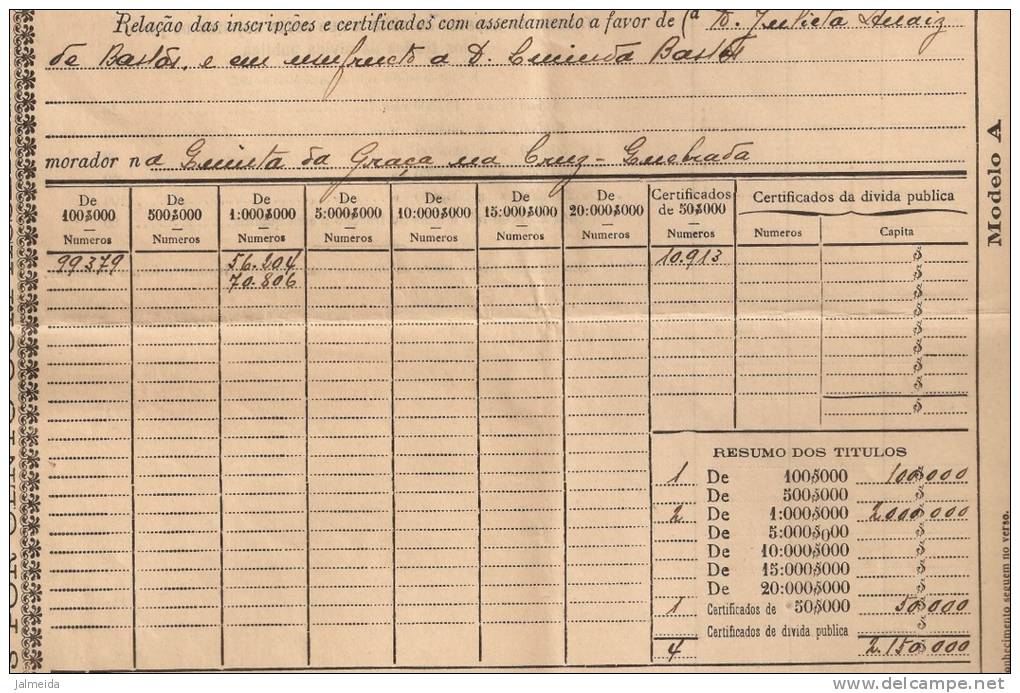 Relação das inscripções e certificados com assentamento a favor de
de Bastos, e em usufructo a D. Bastos
morador na Quinta da Graça na Cruz-Quebrada
Modelo A
De 100$000 De 500$000 De 1:000$000 De 5:000$000 De 10:000$000 De 15:000$000 De 20:000$000 Certificados de 50$000 Certificados da divida publica
Numeros Numeros Numeros Numeros Numeros Numeros Numeros Numeros Numeros Capita
99379 56.204 10.913 $
70.806 $
$
$
$
$
$
$
$
RESUMO DOS TITULOS
1 De 100$000 100$000
De 500$000 $
2 De 1:000$000 2000$000
De 5:000$000 $
De 10:000$000 $
De 15:000$000 $
De 20:000$000 $
1 Certificados de 50$000 50$000
Certificados de divida publica $
4 2.150$000
onhecimento seguem no verso.
jalmeida
delcampe.net